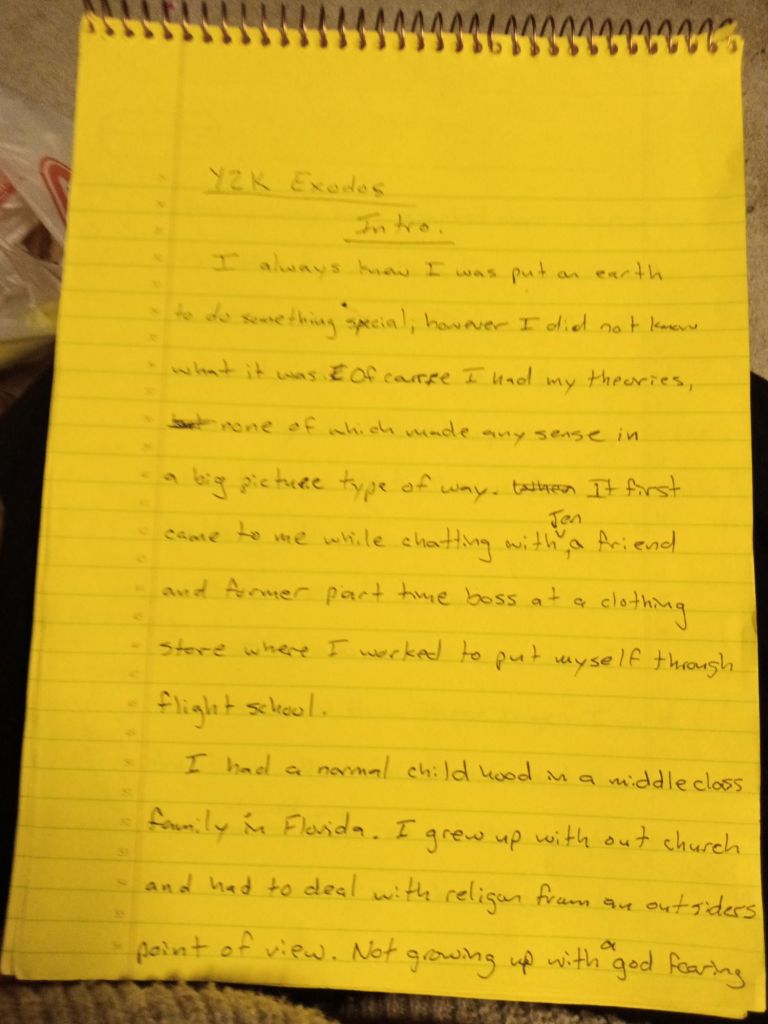 Y2K Exodos
Intro.
I always knew I was put on earth
to do something special; however I did not know
what it was. Of course I had my theories,
but none of which made any sense in
a big picture type of way. When It first
came to me while chatting with Jen, a friend
and former part time boss at a clothing
store where I worked to put myself through
flight school.
I had a normal child hood in a middle class
family in Florida. I grew up with out church
and had to deal with religon from an outsiders
point of view. Not growing up with a god fearing